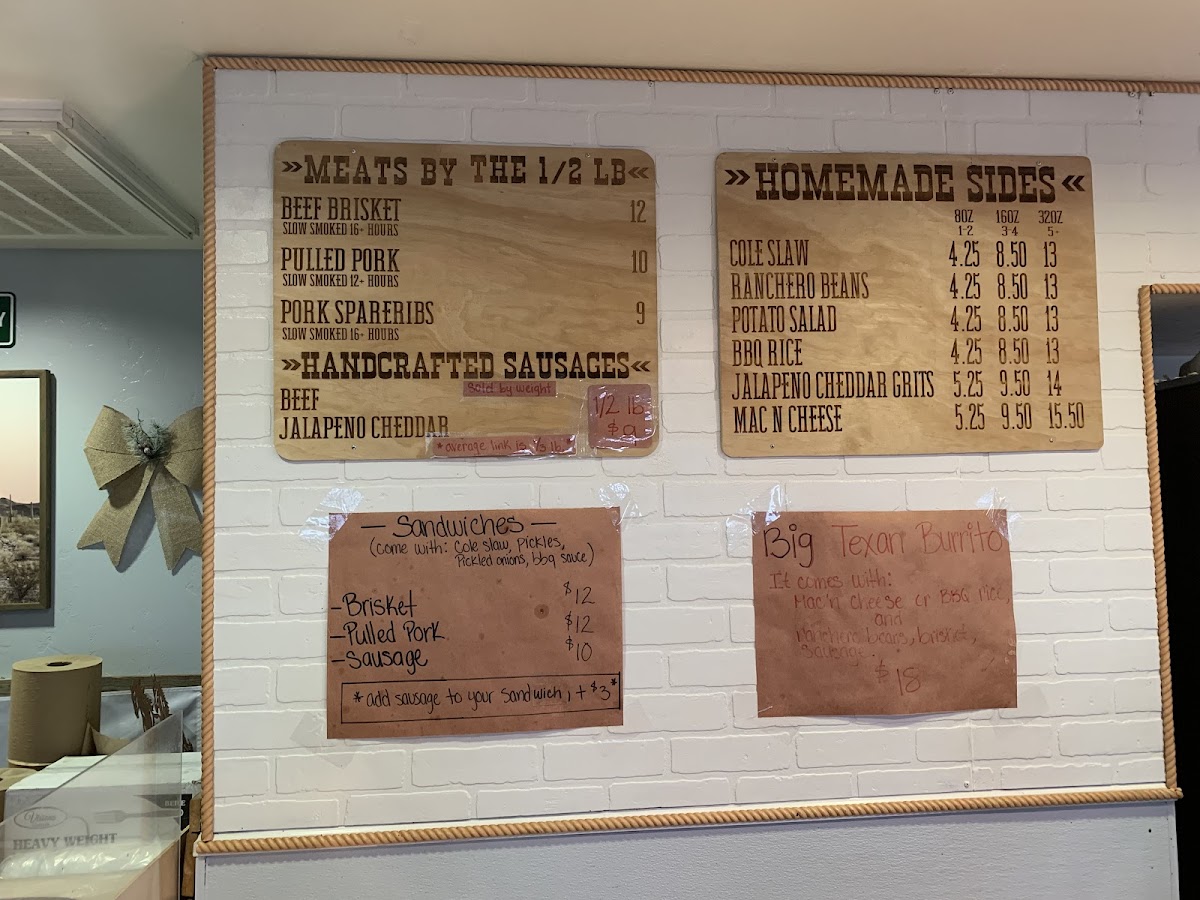 »MEATS BY THE 1/2 LB«
BEEF BRISKET 12
SLOW SMOKED 16+ HOURS
PULLED PORK 10
SLOW SMOKED 12+ HOURS
PORK SPARERIBS 9
SLOW SMOKED 16+ HOURS
»HANDCRAFTED SAUSAGES«
Sold by weight
BEEF
1/2 lb
$9
JALAPENO CHEDDAR
*average link is 1/3 lb*
»HOMEMADE SIDES«
8OZ 16OZ 32OZ
1-2 3-4 5+
COLE SLAW 4.25 8.50 13
RANCHERO BEANS 4.25 8.50 13
POTATO SALAD 4.25 8.50 13
BBQ RICE 4.25 8.50 13
JALAPENO CHEDDAR GRITS 5.25 9.50 14
MAC N CHEESE 5.25 9.50 15.50
— Sandwiches —
(come with: Cole slaw, pickles,
Pickled onions, bbq sauce)
-Brisket $12
-Pulled Pork $12
-Sausage $10
*add sausage to your sandwich, + $3*
Big Texan Burrito
It comes with:
Mac'n cheese or BBQ rice,
and
ranchero beans, brisket,
Sausage.
$18
Y
HEAVY WEIGHT